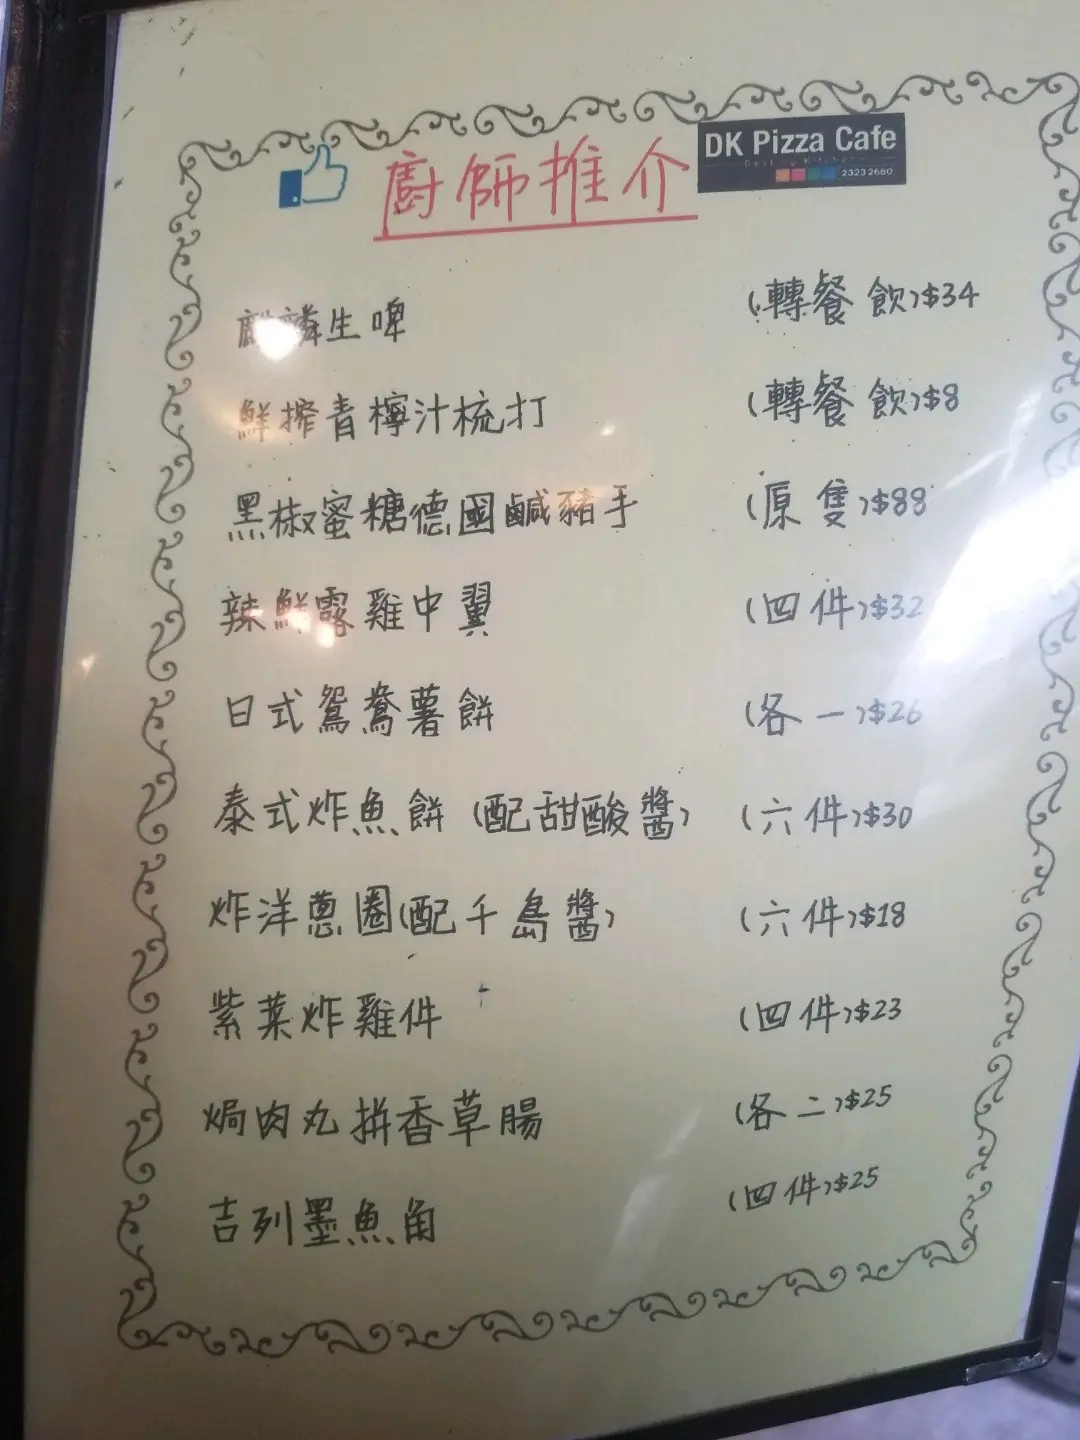 廚師推介
DK Pizza Cafe
2323 2680
麒麟生啤 (轉餐飲)$34
鮮搾青檸汁梳打 (轉餐飲)$8
黑椒蜜糖德國鹹豬手 (原隻)$88
辣鮮露雞中翼 (四件)$32
日式鴛鴦薯餅 (各一)$26
泰式炸魚餅(配甜酸醬) (六件)$30
炸洋蔥圈(配千島醬) (六件)$18
紫菜炸雞件 (四件)$23
焗肉丸拼香草腸 (各二)$25
吉列墨魚角 (四件)$25